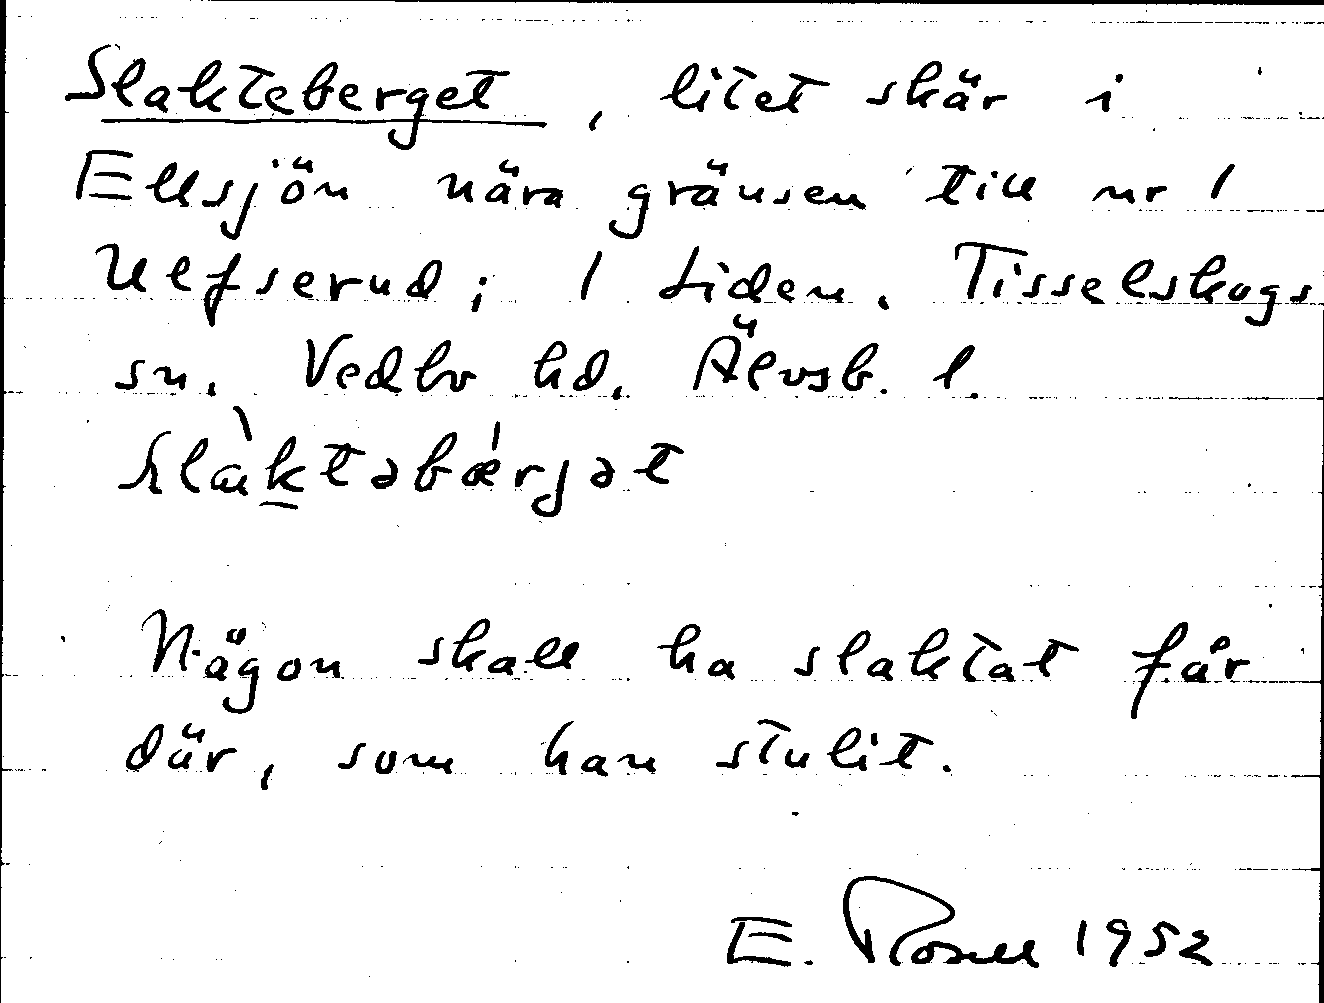 Slakteberget, litet skär i
Ellsjön nära gränsen till nr 1
Ulfserud; 1 Liden. Tisselskogs
sn. Vedbo hd. Älvsb. l.
slàktəbǽrjət
Någon skall ha slaktat får
där, som han stulit.
E. Rosell 1952